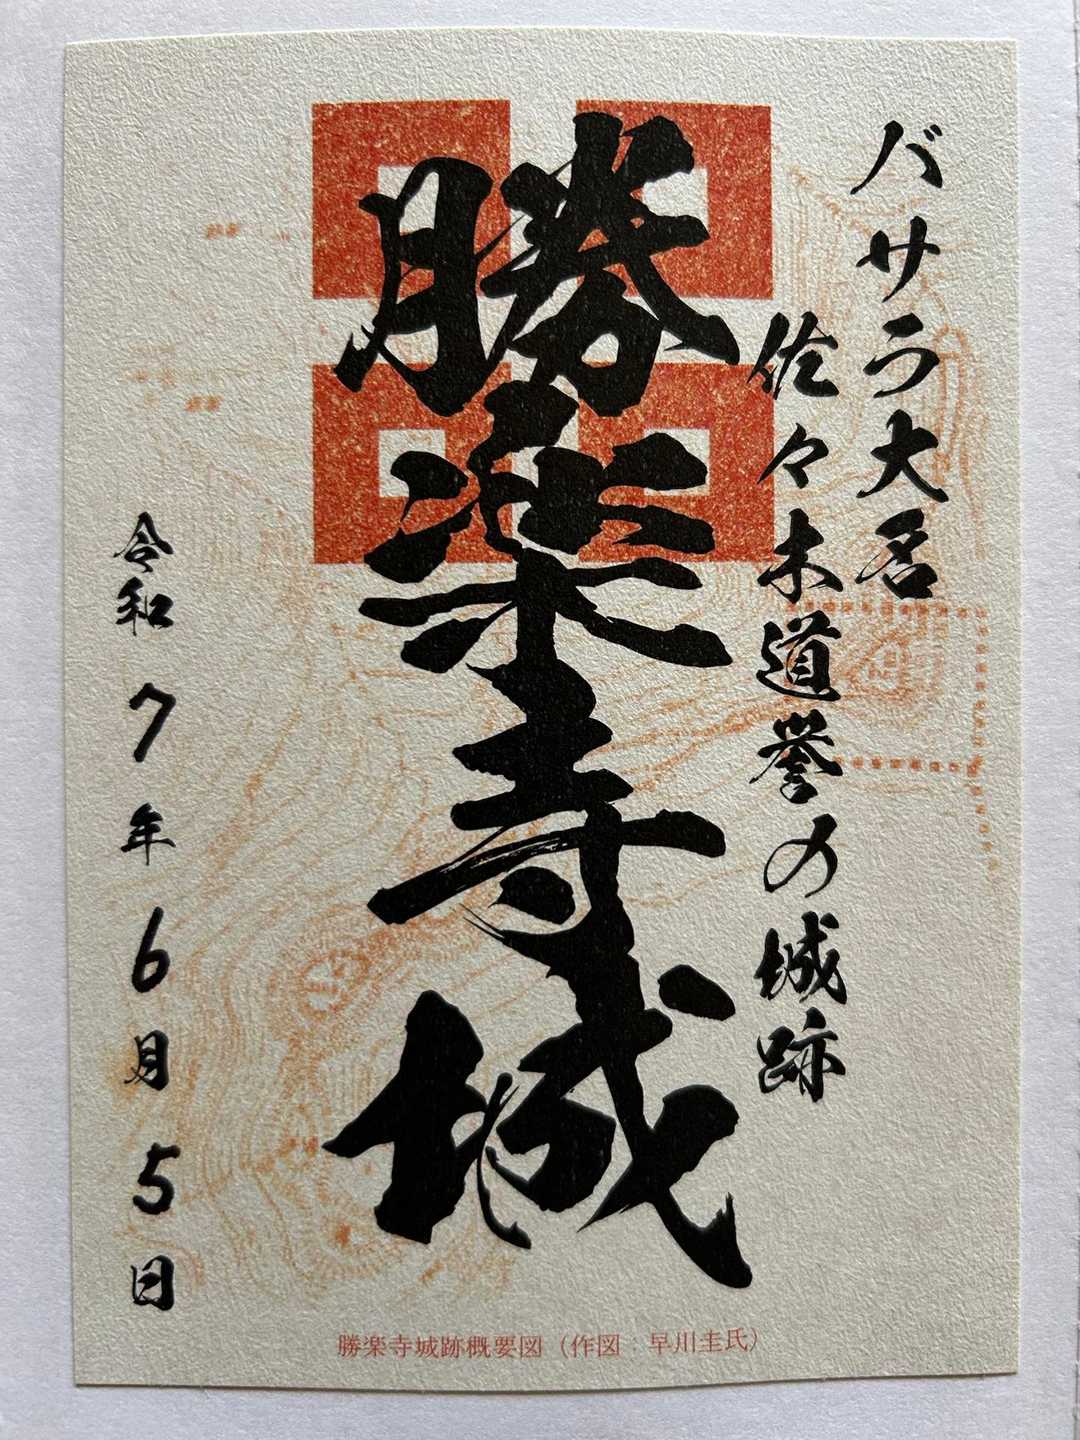 バサラ大名
佐々木道誉の城跡
勝楽寺城
令和7年6月5日
勝楽寺城跡概要図（作図：早川圭氏）